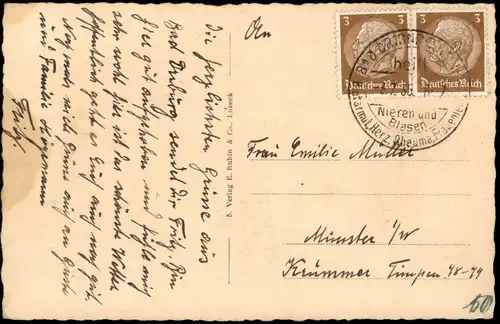 Die herzlichsten Grüsse aus
Bad Driburg sendet Dir Fritz. Bin
hier gut aufgehoben und fühle mich
sehr wohl hier ist das schönste Wetter
Hoffentlich geht es Euch auch noch gut.
Nochmals viele Grüsse auch an Guste
und Familie Hegemann
Fritz.
5. Verlag E. Rubin & Co., Lübeck
An
Frau Emilie Müller
Münster i/W
Krummer Timpen 48-49
3
3
Deutsches Reich
Deutsches Reich
BAD DRIBURG
heilt
Nieren und
Blasen
Darm, Herz, Rheuma, Frauen
60